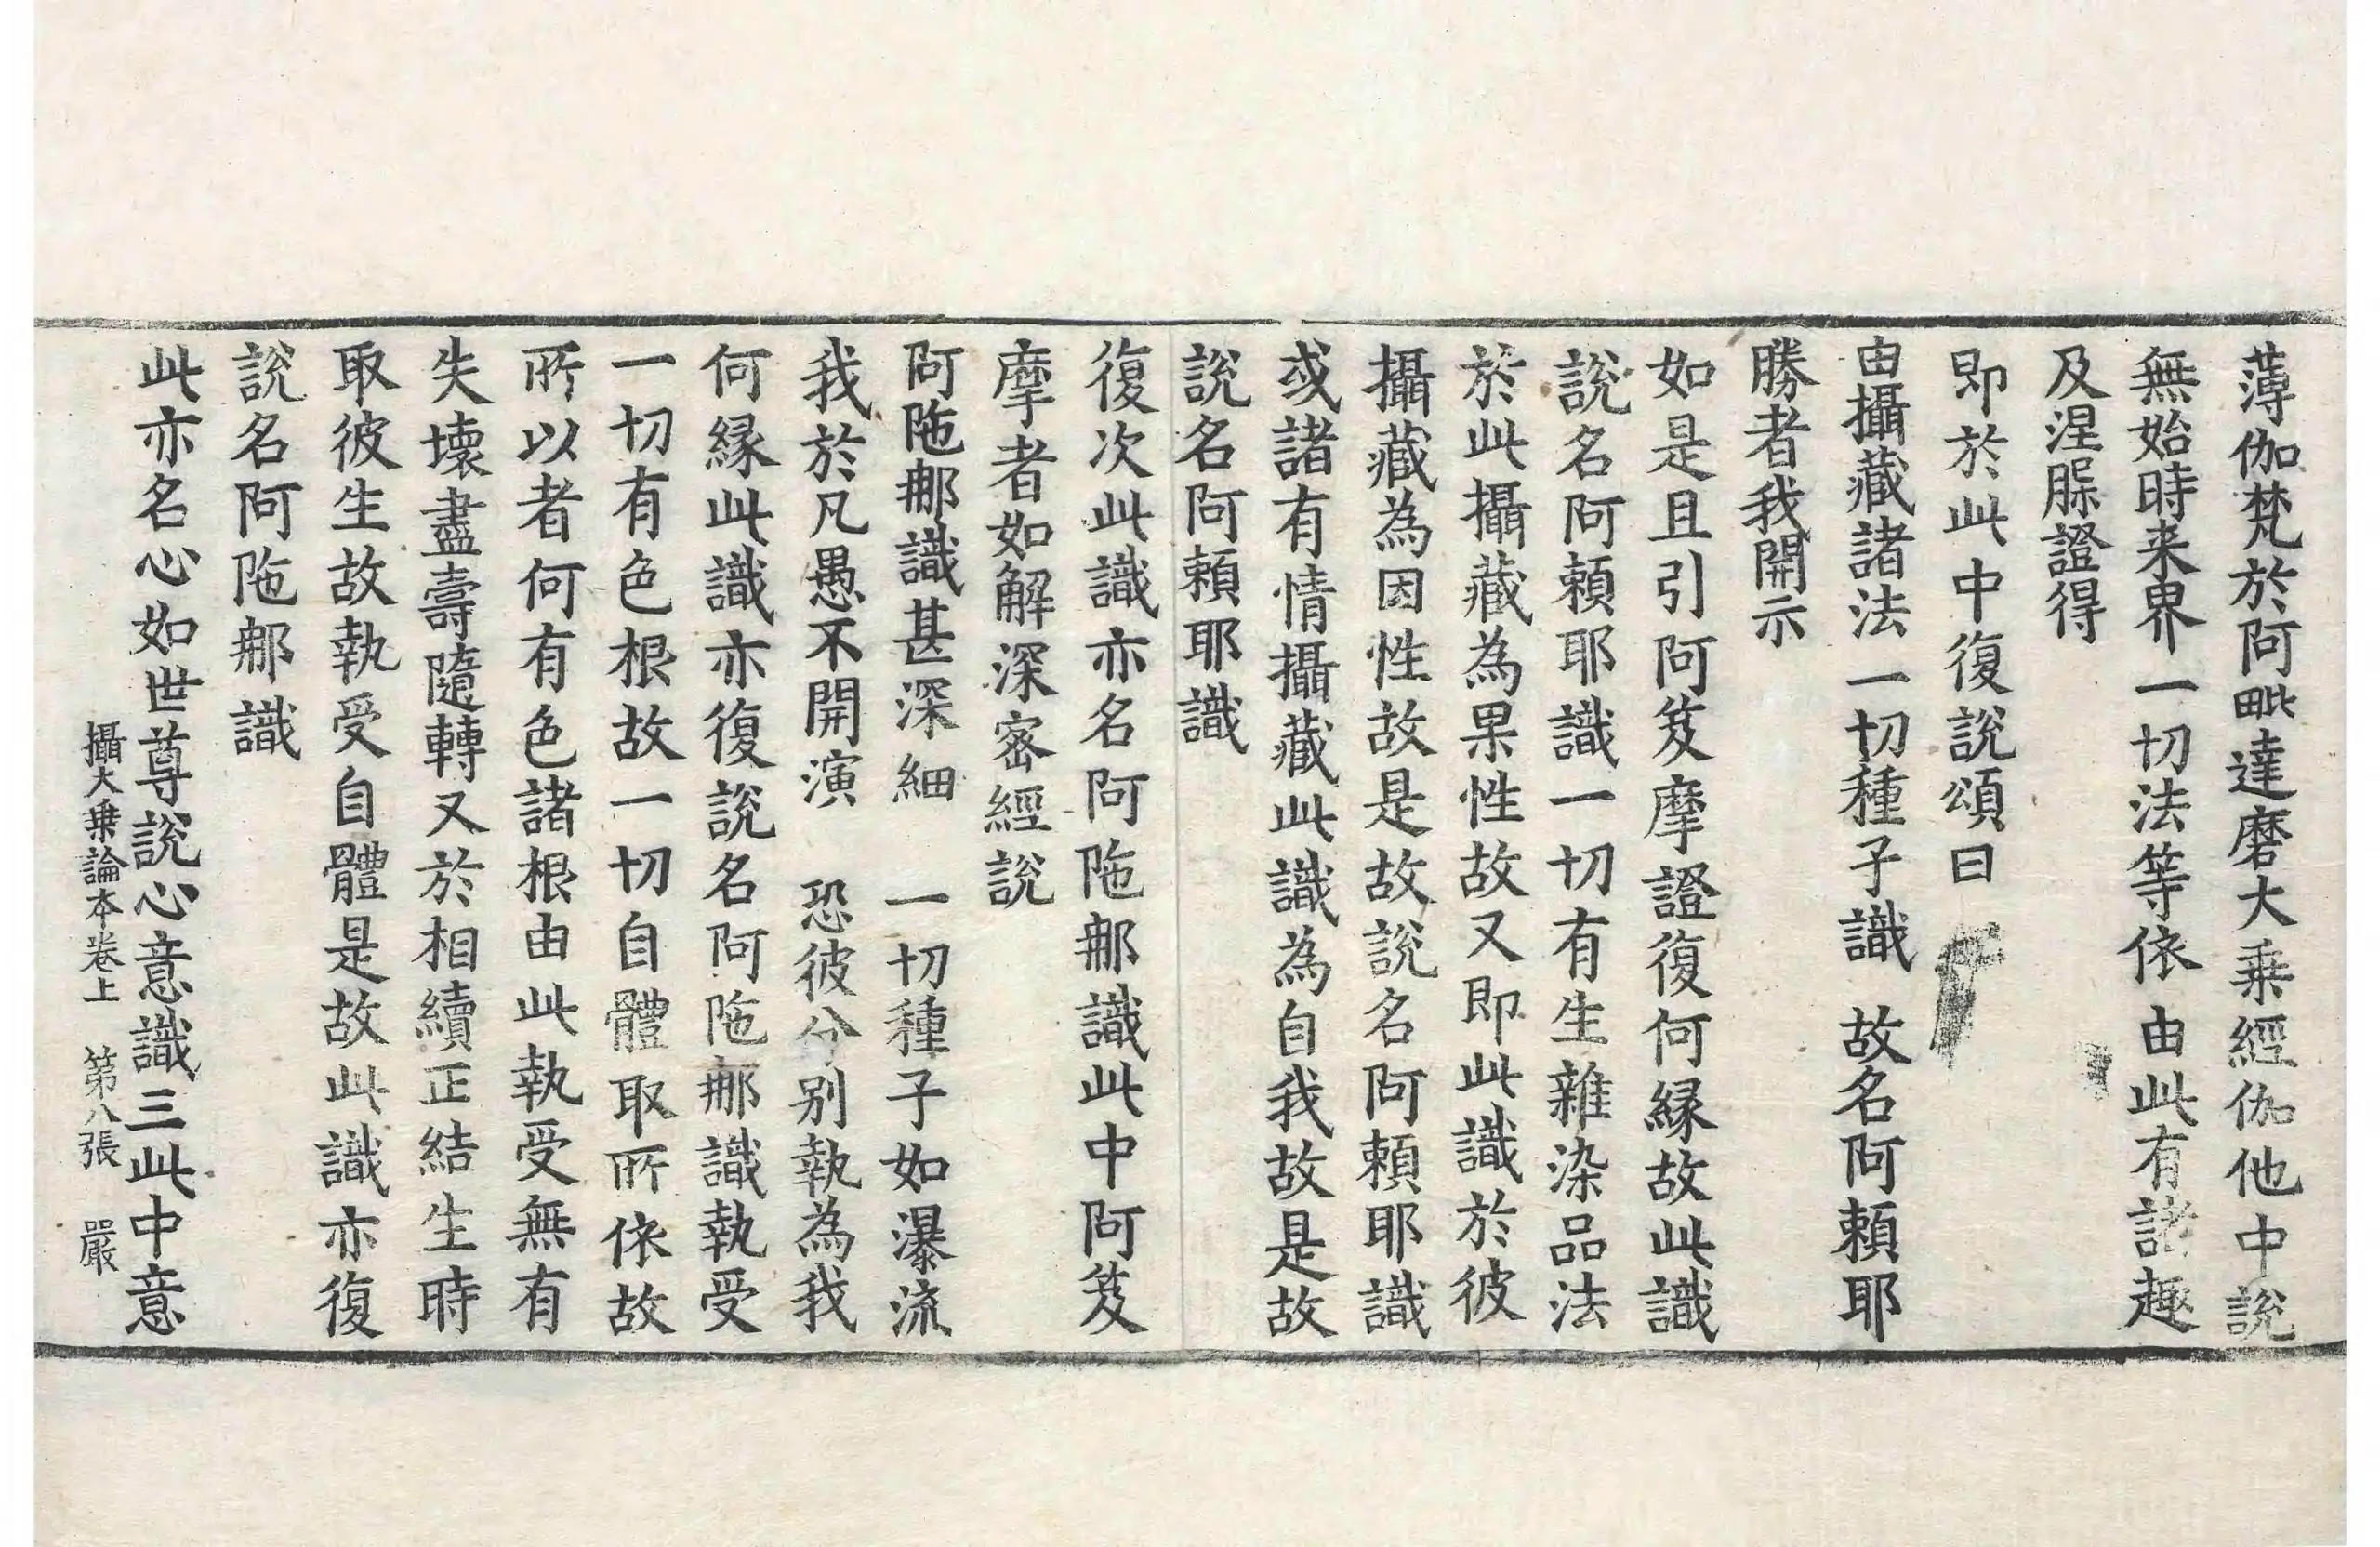 薄伽梵於阿毗達磨大乗經伽他中說
無始時来界一切法等依　由此有諸趣
及涅槃證得
即於此中復說頌曰
由攝藏諸法一切種子識　故名阿賴耶
勝者我開示
如是且引阿笈摩證復何縁故此識
說名阿賴耶識一切有生雜染品法
於此攝藏為果性故又即此識於彼
攝藏為因性故是故說名阿賴耶識
或諸有情攝藏此識為自我故是故
說名阿賴耶識
復次此識亦名阿陁那識此中阿笈
摩者如解深密經說
阿陁那識甚深細　一切種子如瀑流
我於凡愚不開演　恐彼分別執為我
何縁此識亦復說名阿陁那識執受
一切有色根故一切自體取所依故
所以者何有色諸根由此執受無有
失壞盡壽隨轉又於相續正結生時
取彼生故執受自體是故此識亦復
說名阿陁那識
此亦名心如世尊說心意識三此中意
攝大乗論本卷上　第八張　嚴